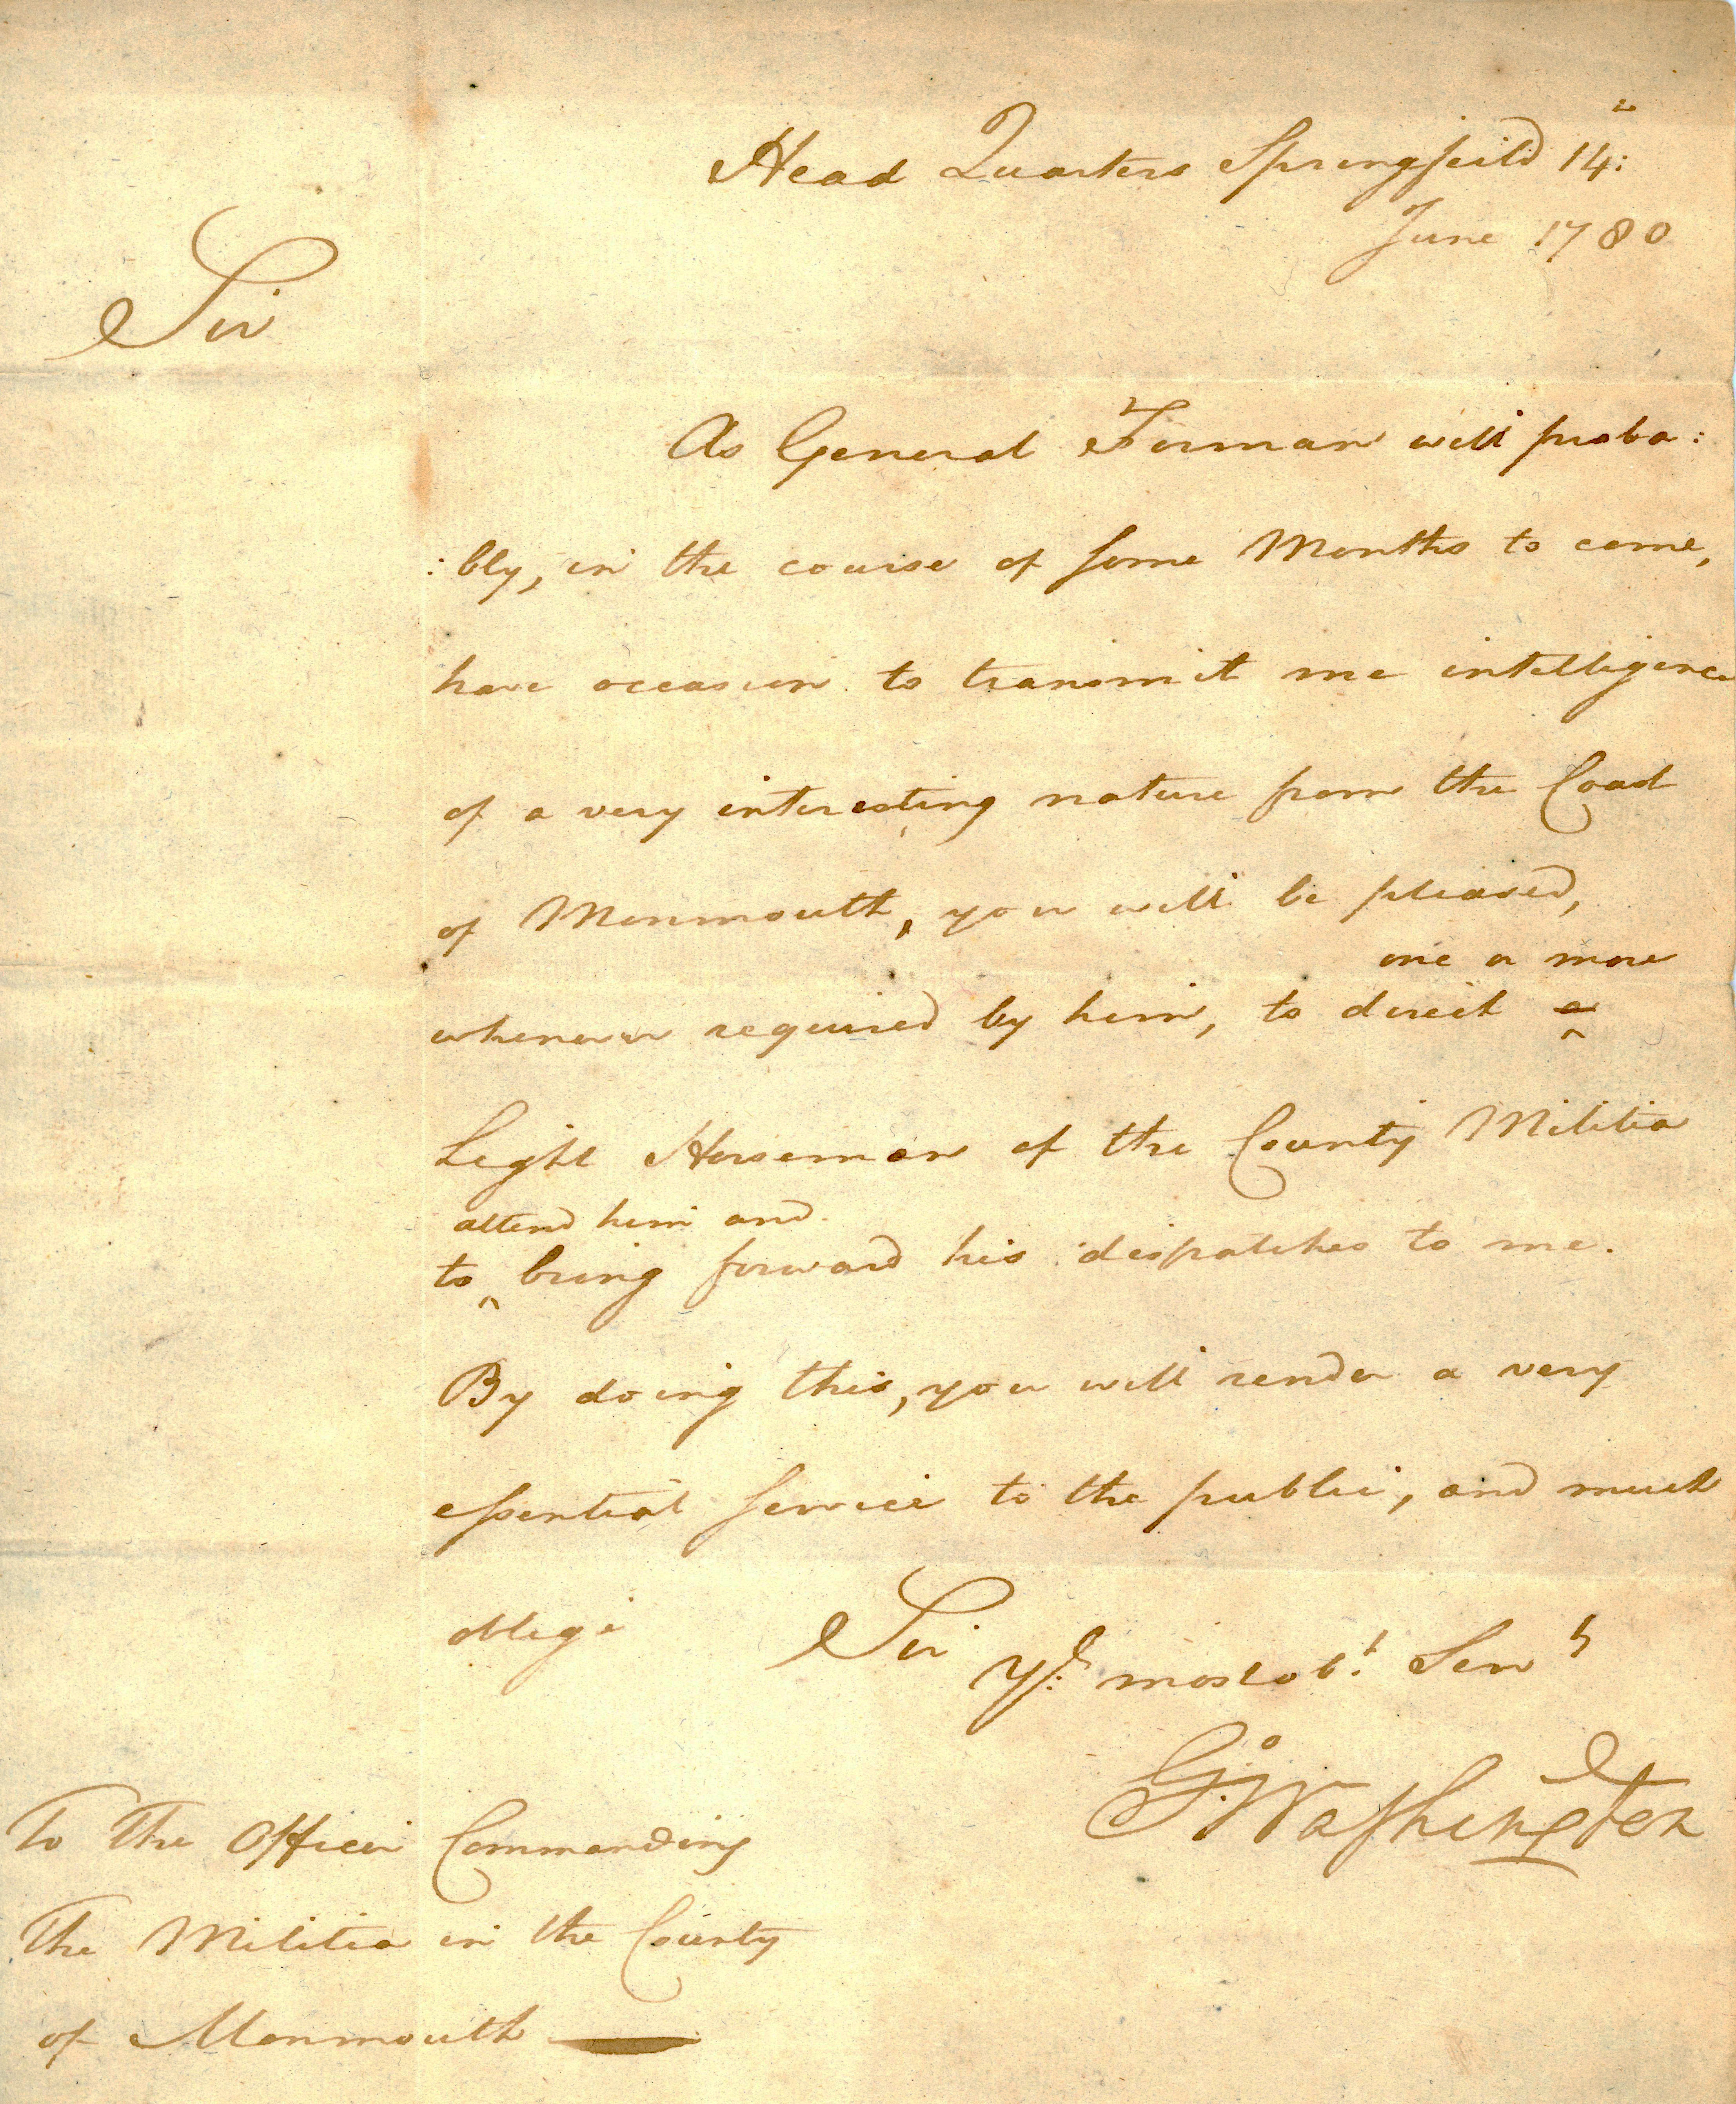 Head Quarters Springfeild 14:
June 1780
Sir
As General Forman will proba:
:bly, in the course of some Months to come,
have occasion to transmit me intelligence
of a very interesting nature from the Coast
of Monmouth, you will be pleased,
one or more
whenever required by him, to direct a
Light Horseman of the County Militia
attend him and
to bring forward his dispatches to me.
By doing this, you will render a very
essential service to the public, and much
oblige Sir
Yr. most obt. Servt
Go: Washington
To The Officer Commanding
The Militia in the County
of Monmouth